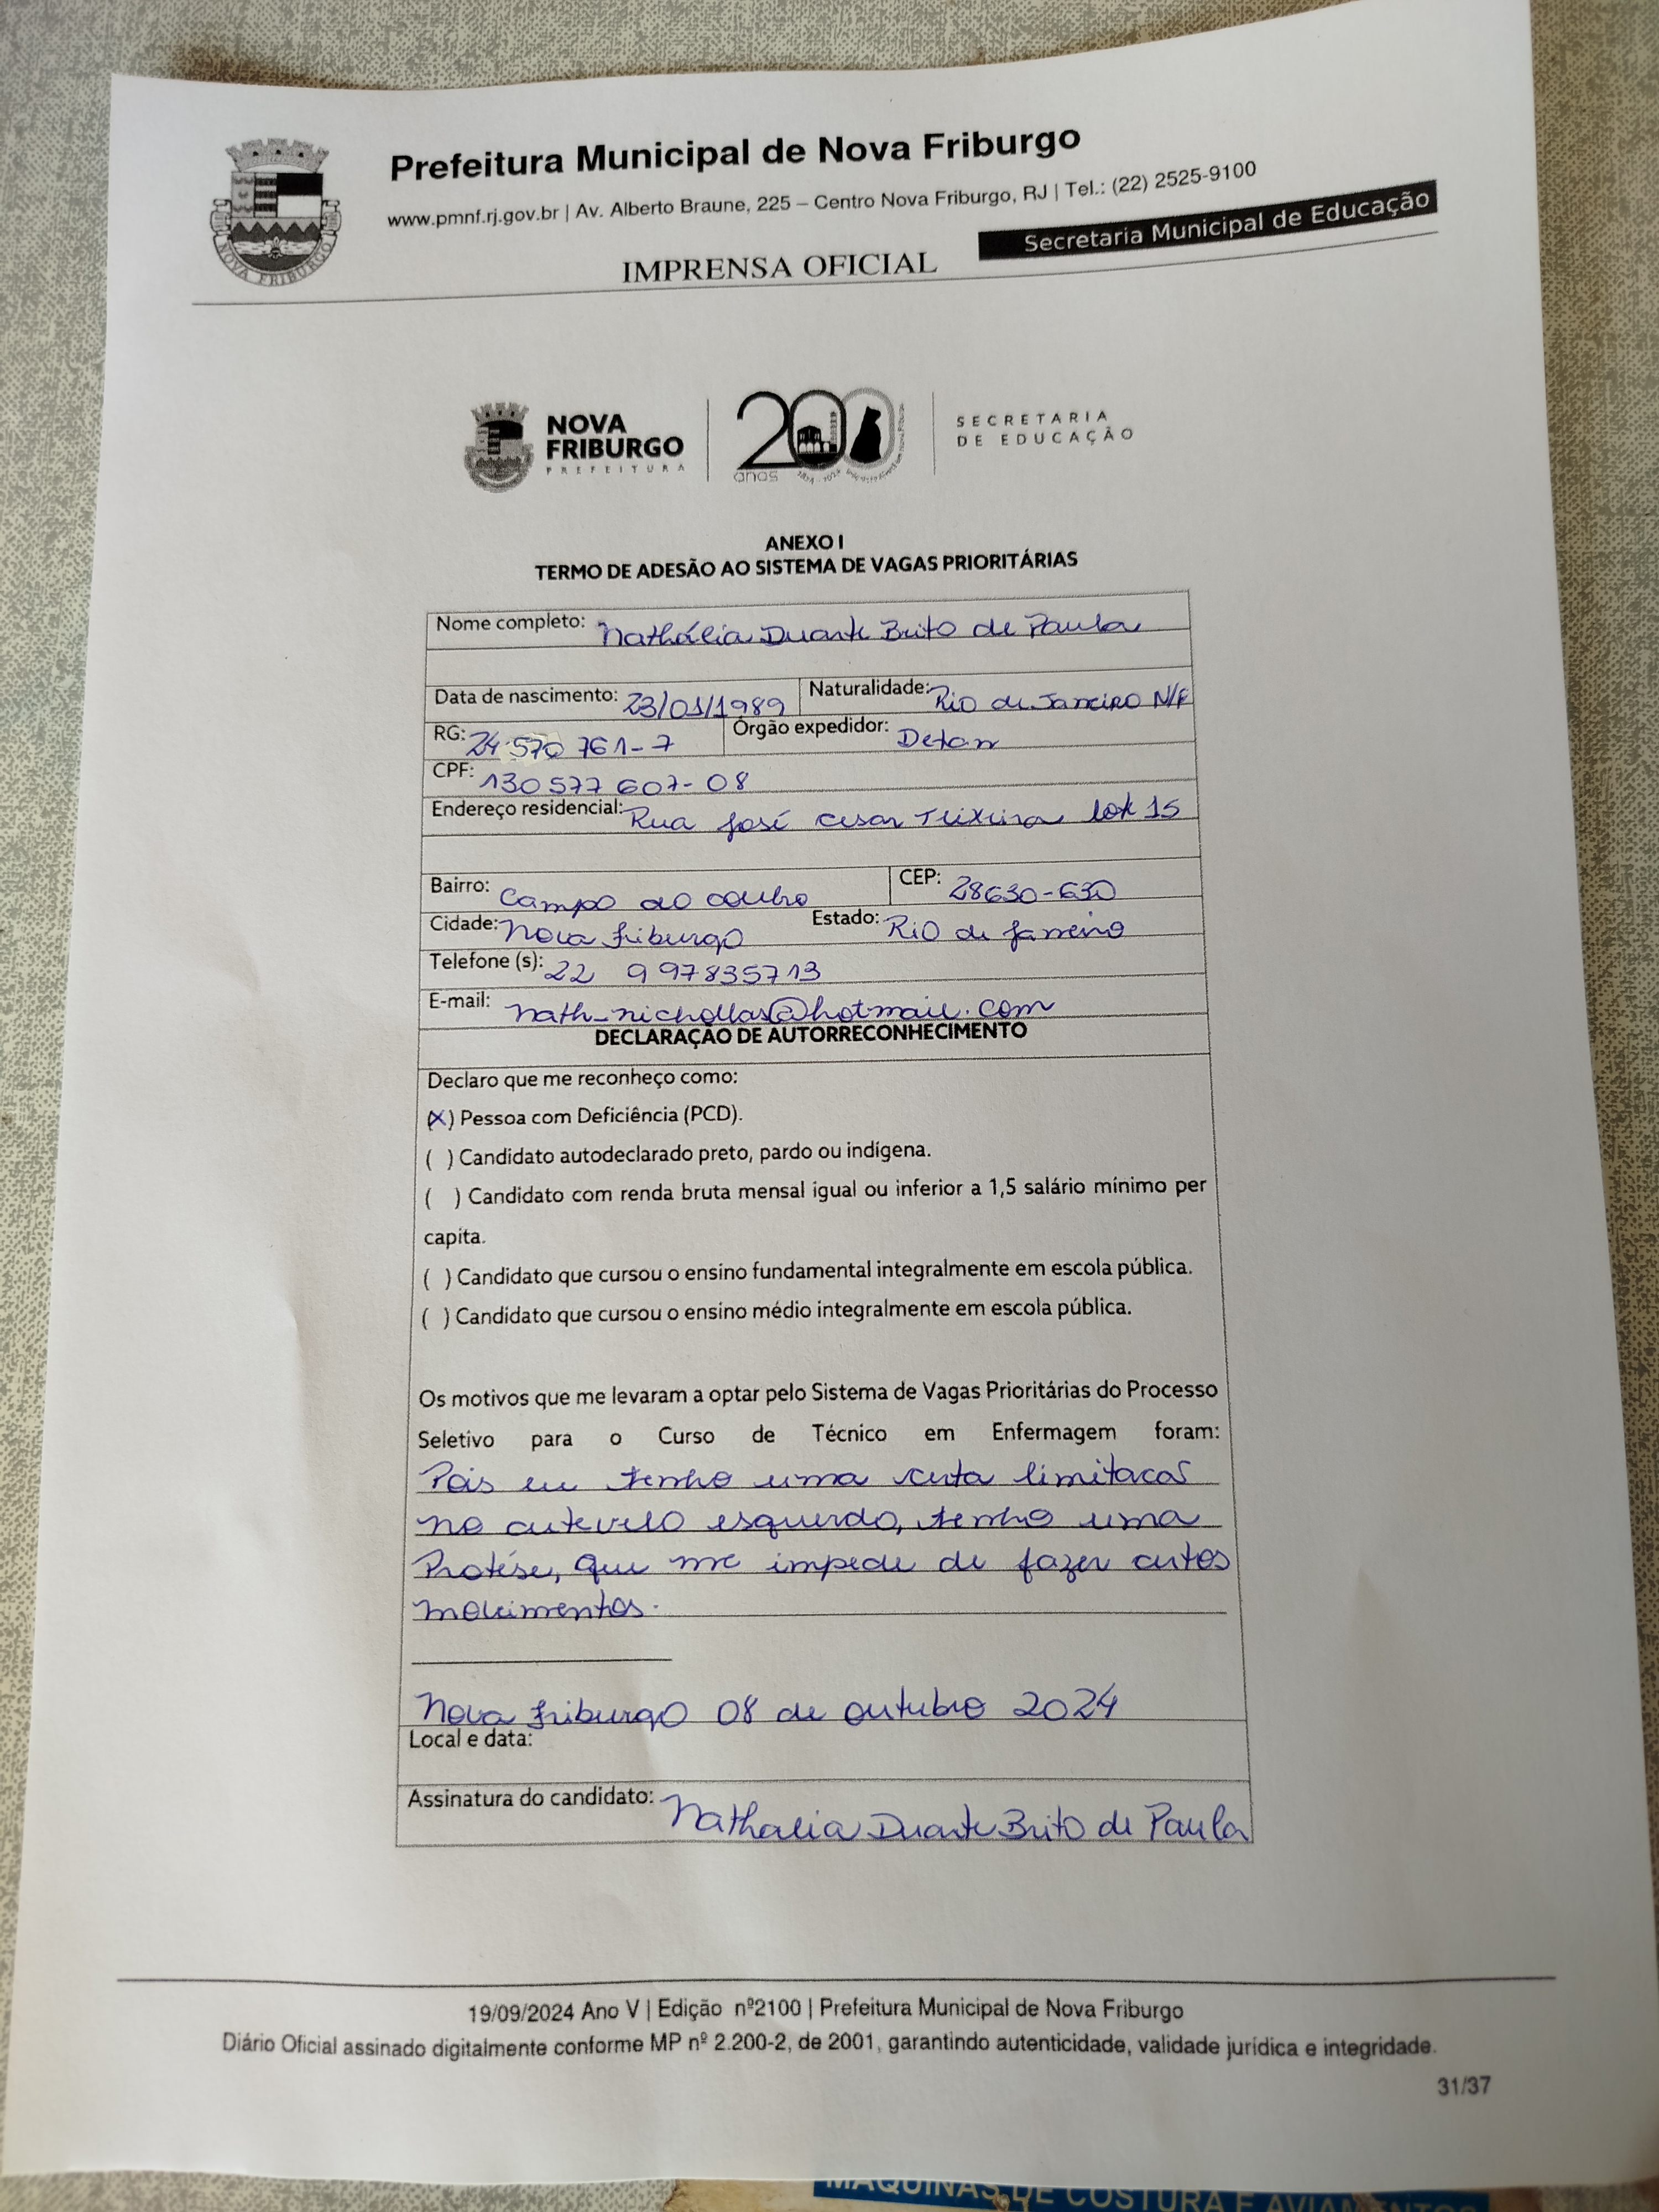 Prefeitura Municipal de Nova Friburgo
www.pmnf.rj.gov.br | Av. Alberto Braune, 225 – Centro Nova Friburgo, RJ | Tel.: (22) 2525-9100
Secretaria Municipal de Educação
IMPRENSA OFICIAL
NOVA FRIBURGO
NOVA
FRIBURGO
PREFEITURA
200
anos
SECRETARIA
DE EDUCAÇÃO
ANEXO I
TERMO DE ADESÃO AO SISTEMA DE VAGAS PRIORITÁRIAS
Nome completo: Nathália Duarte Brito de Paula
Data de nascimento: 23/01/1989 Naturalidade: Rio de Janeiro N/F
RG: 24 570 761-7 Órgão expedidor: Detan
CPF: 130 577 607-08
Endereço residencial: Rua José Cesar Teixeira lote 15
Bairro: Campo do coelho CEP: 28630-630
Cidade: Nova friburgo Estado: Rio de Janeiro
Telefone (s): 22 997835713
E-mail: nath_nichollas@hotmail.com
DECLARAÇÃO DE AUTORRECONHECIMENTO
Declaro que me reconheço como:
(X) Pessoa com Deficiência (PCD).
( ) Candidato autodeclarado preto, pardo ou indígena.
( ) Candidato com renda bruta mensal igual ou inferior a 1,5 salário mínimo per
capita.
( ) Candidato que cursou o ensino fundamental integralmente em escola pública.
( ) Candidato que cursou o ensino médio integralmente em escola pública.
Os motivos que me levaram a optar pelo Sistema de Vagas Prioritárias do Processo
Seletivo para o Curso de Técnico em Enfermagem foram:
Pois eu tenho uma certa limitacao
no cutevelo esquerdo, tenho uma
Protése, que me impede de fazer certos
movimentos.
Nova friburgo 08 de outubro 2024
Local e data:
Assinatura do candidato: Nathalia Duarte Brito de Paula
19/09/2024 Ano V | Edição nº2100 | Prefeitura Municipal de Nova Friburgo
Diário Oficial assinado digitalmente conforme MP nº 2.200-2, de 2001, garantindo autenticidade, validade jurídica e integridade.
31/37
MÁQUINAS DE COSTURA E AVIAMENTOS